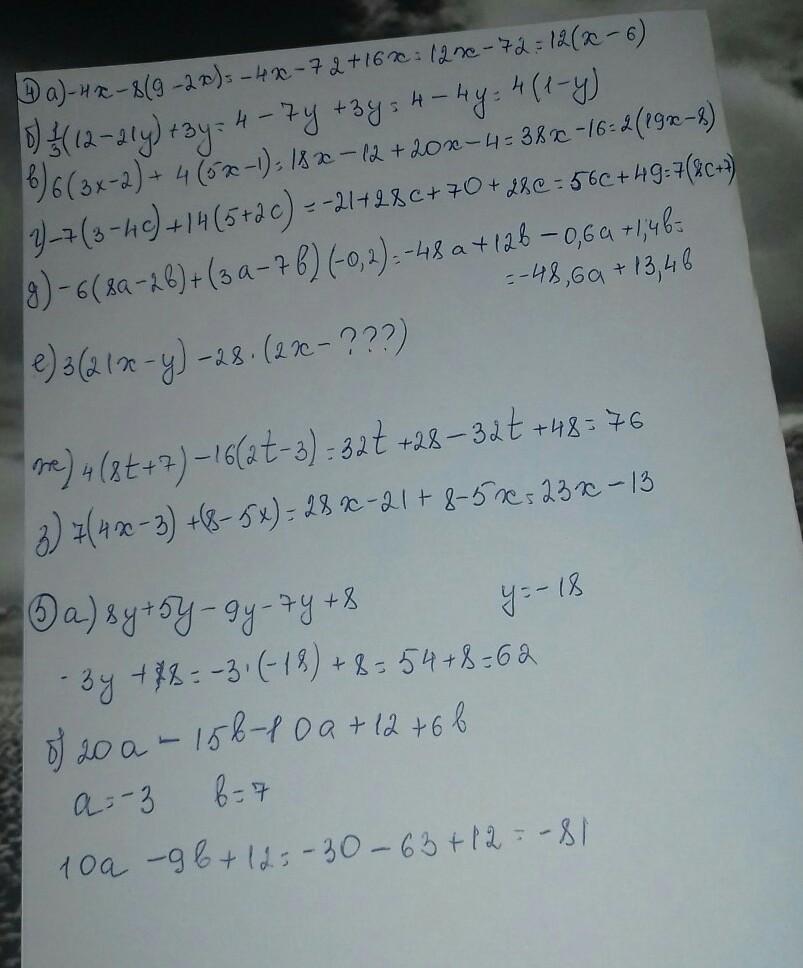 ④ а) -4x-8(9-2x)=-4x-72+16x=12x-72=12(x-6)
б) 1/3(12-21y)+3y=4-7y+3y=4-4y=4(1-y)
в) 6(3x-2)+4(5x-1)=18x-12+20x-4=38x-16=2(19x-8)
г) -7(3-4c)+14(5+2c)=-21+28c+70+28c=56c+49=7(8c+7)
д) -6(8a-2b)+(3a-7b)(-0,2)=-48a+12b-0,6a+1,4b=
=-48,6a+13,4b
е) 3(21x-y)-28·(2x-???)
ж) 4(8t+7)-16(2t-3)=32t+28-32t+48=76
з) 7(4x-3)+(8-5x)=28x-21+8-5x=23x-13
⑤ а) 8y+5y-9y-7y+8 y=-18
-3y+8=-3·(-18)+8=54+8=62
б) 20a-15b-10a+12+6b
a=-3 b=7
10a-9b+12=-30-63+12=-81